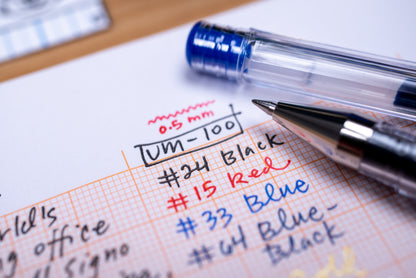 0.5 mm
UM-100
#24 Black
#15 Red
#33 Blue
#64 Blue-
Black
office
Signo